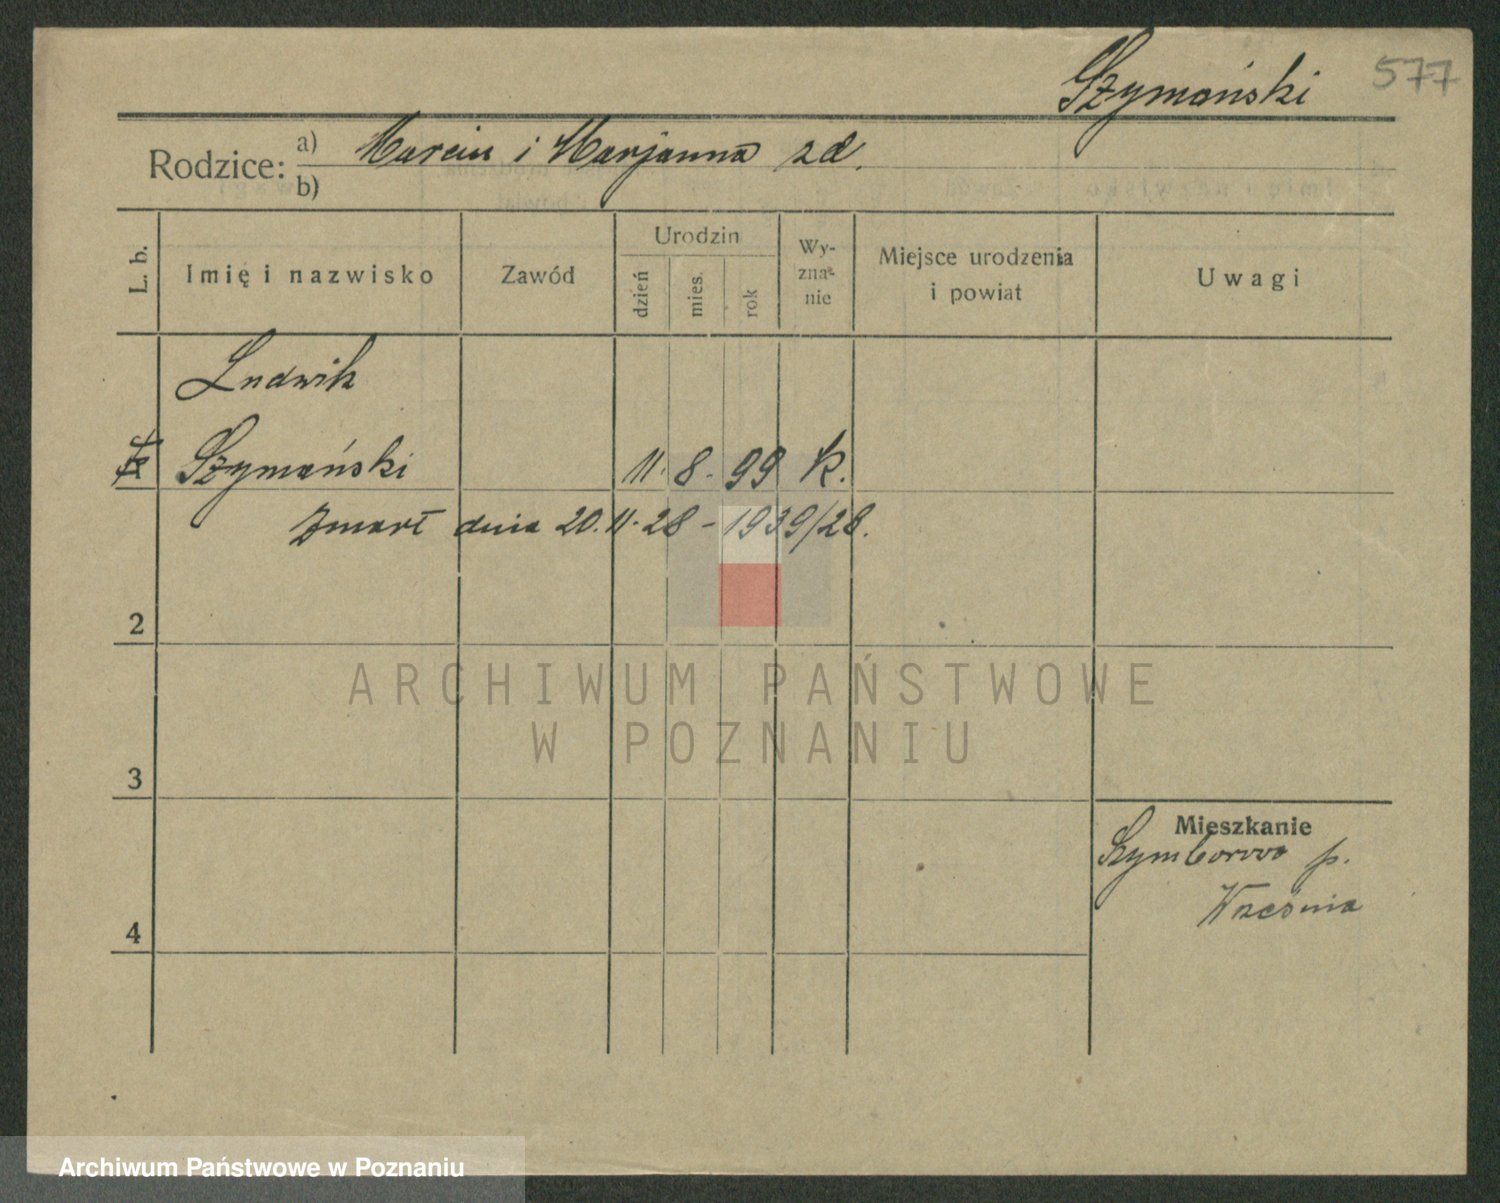 Szymański 577
Rodzice: a) Marcin i Marjanna zd.
b)
L. b.
Imię i nazwisko
Zawód
Urodzin
dzień
mies.
rok
Wy-
zna-
nie
Miejsce urodzenia
i powiat
Uwagi
Ludwik
Szymański 11. 8. 99 k.
Zmarł dnia 20.11.28 - 1939/28.
2
3
4
Mieszkanie
Szymborowo p.
Września
ARCHIWUM PAŃSTWOWE
W POZNANIU
Archiwum Państwowe w Poznaniu